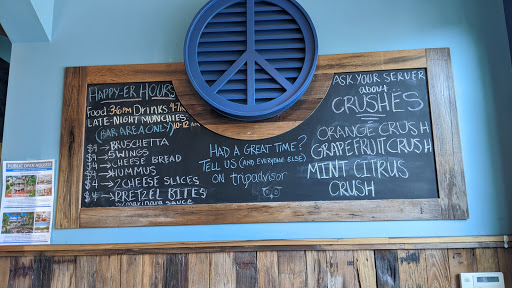 HAPPY-ER HOURS
Food 3-6PM Drinks 4-7PM
LATE-NIGHT MUNCHIES
(BAR AREA ONLY) 10-12AM
$4 → BRUSCHETTA
$4 → 5 WINGS
$4 → CHEESE BREAD
$4 → HUMMUS
$4 → 2 CHEESE SLICES
$4 → PRETZEL BITES
w/ marinara sauce
HAD A GREAT TIME?
TELL US (AND EVERYONE ELSE)
ON tripadvisor
ASK YOUR SERVER
about
CRUSHES
ORANGE CRUSH
GRAPEFRUIT CRUSH
MINT CITRUS
CRUSH
PUBLIC OPEN ACCESS